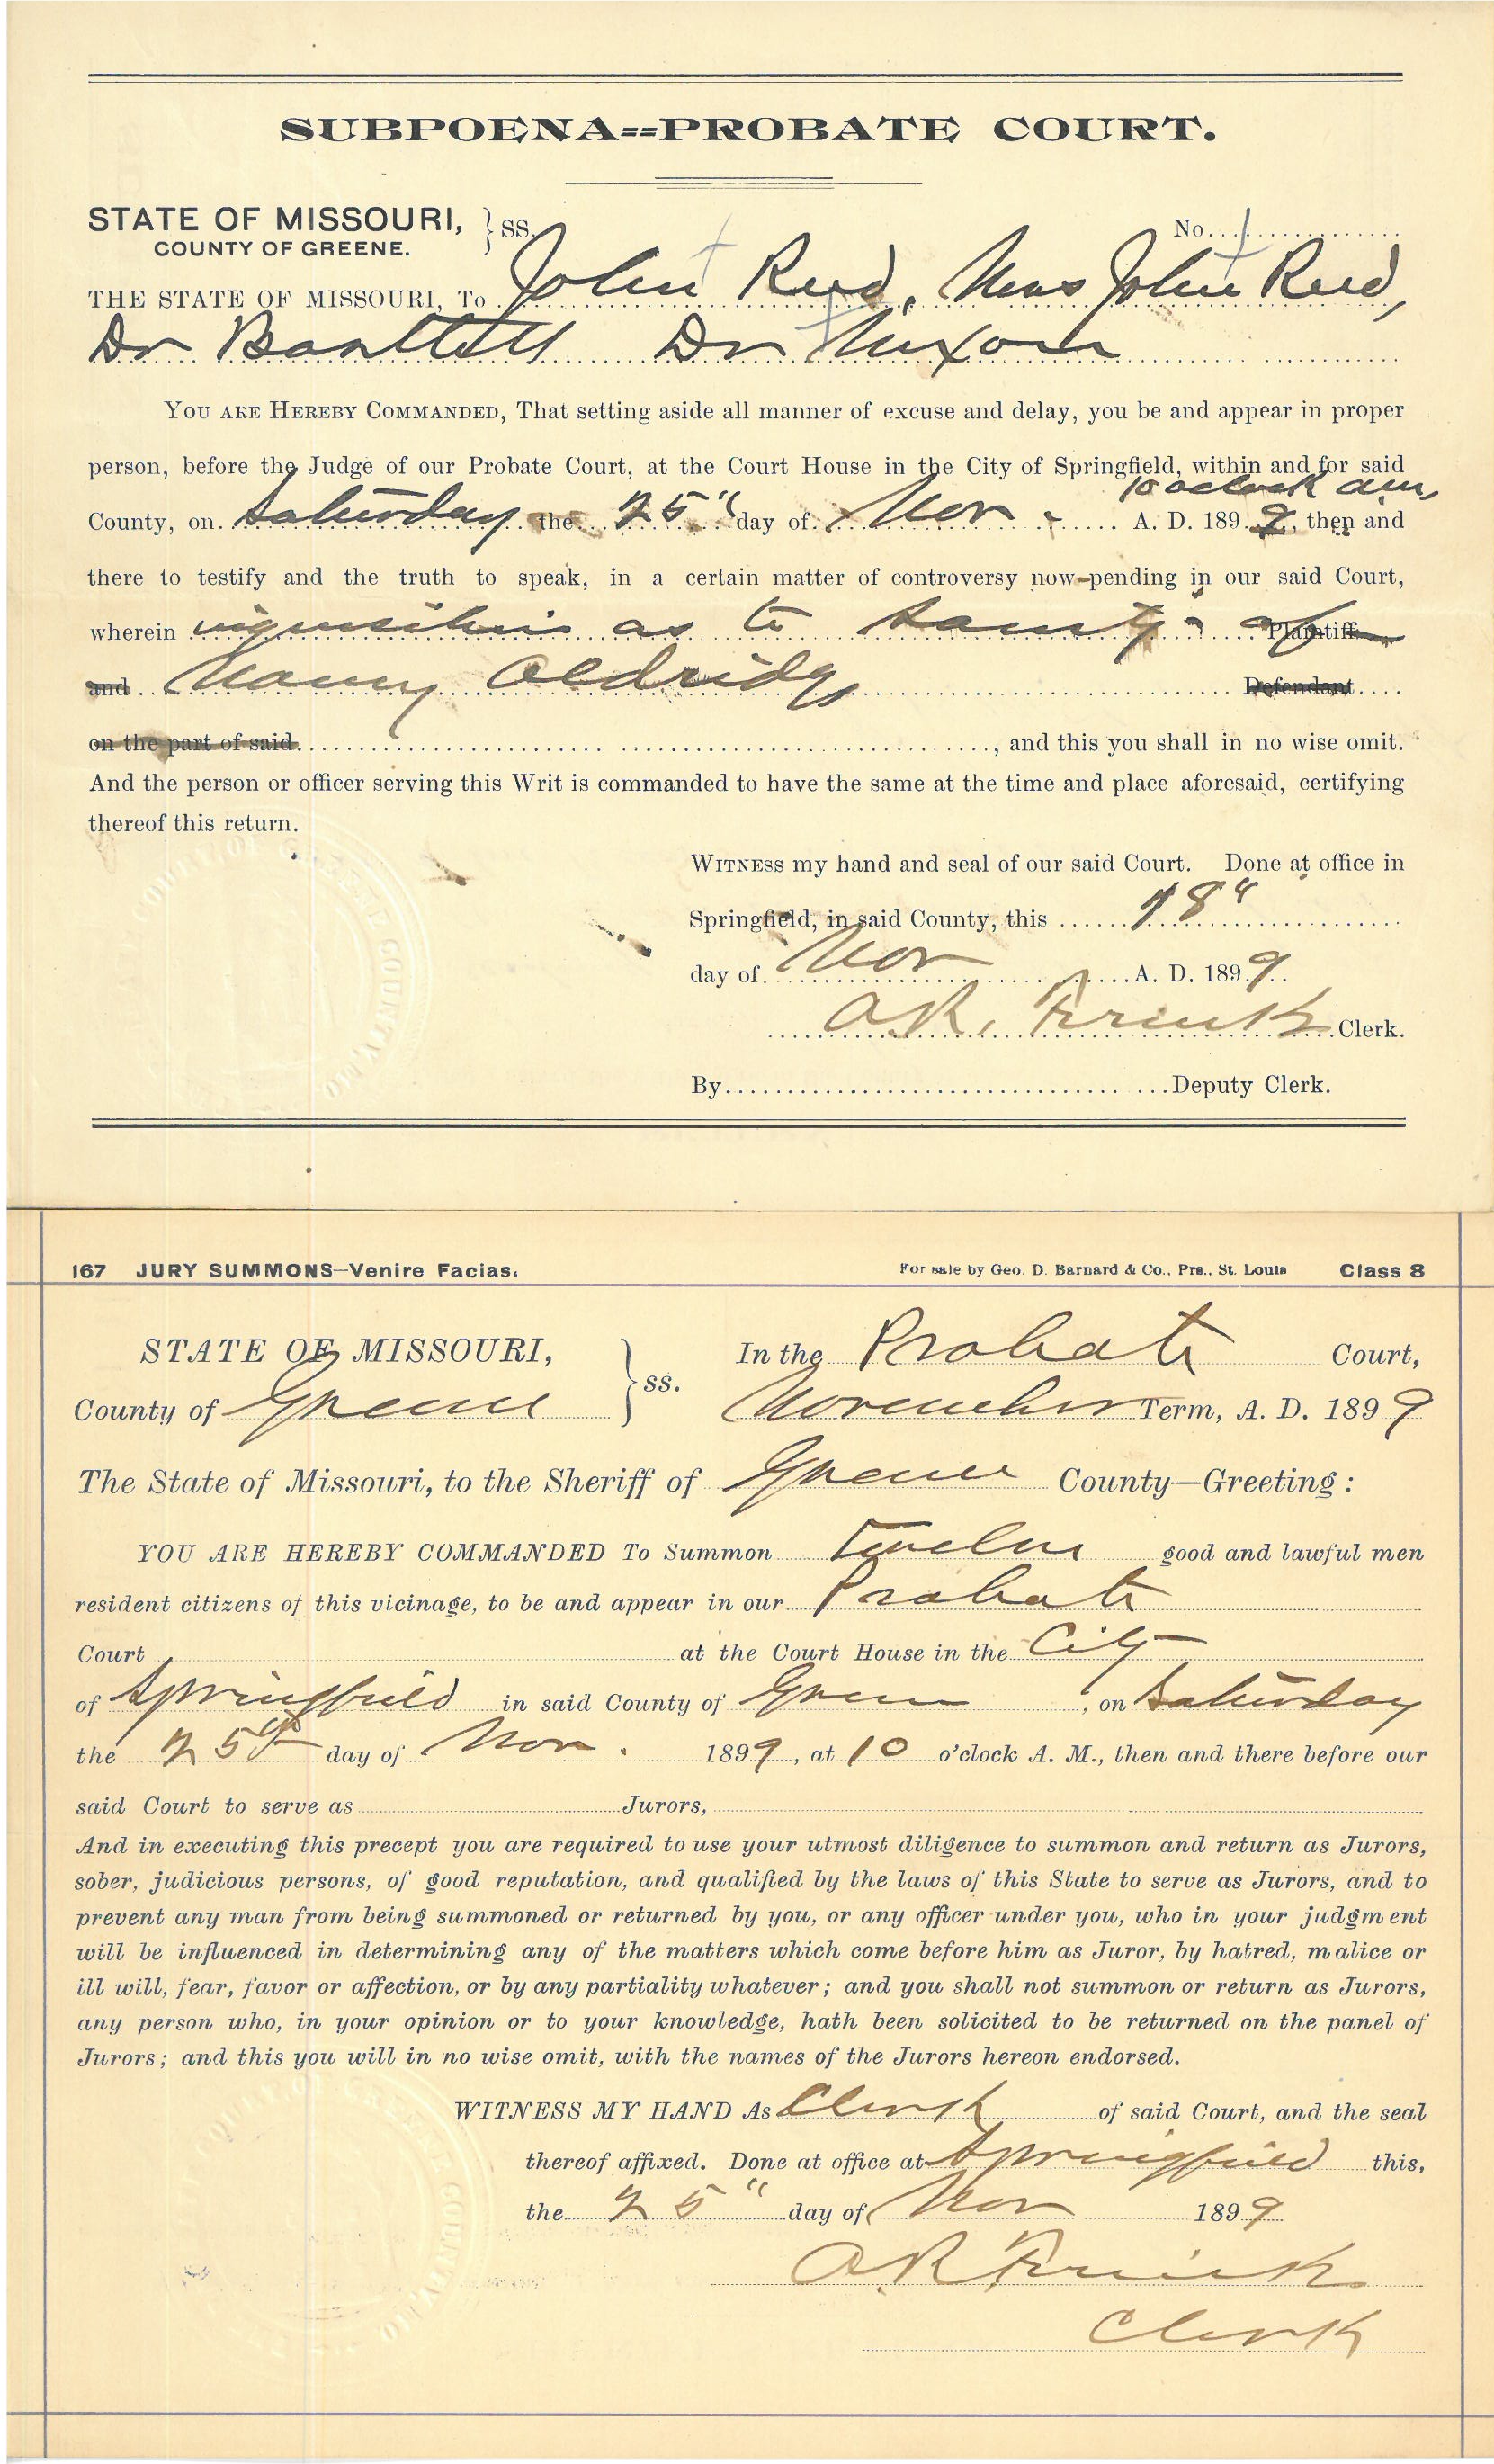 SUBPOENA==PROBATE COURT.
STATE OF MISSOURI, } SS.
COUNTY OF GREENE.
No.
THE STATE OF MISSOURI, To John Reed, Mrs John Reed,
Dr Bartlett Dr Nixon
YOU ARE HEREBY COMMANDED, That setting aside all manner of excuse and delay, you be and appear in proper
person, before the Judge of our Probate Court, at the Court House in the City of Springfield, within and for said
10 oclock am,
County, on Saturday the 25" day of Nov A. D. 1899, then and
there to testify and the truth to speak, in a certain matter of controversy now pending in our said Court,
wherein inquisition as to sanity of Plaintiff
and Nancy Aldridge Defendant
on the part of said, and this you shall in no wise omit.
And the person or officer serving this Writ is commanded to have the same at the time and place aforesaid, certifying
thereof this return.
WITNESS my hand and seal of our said Court. Done at office in
Springfield, in said County, this 18"
day of Nov A. D. 1899.
Clerk.
By Deputy Clerk.
167 JURY SUMMONS—Venire Facias.
For sale by Geo. D. Barnard & Co., Prs., St. Louis Class 8
STATE OF MISSOURI, } ss. In the Probate Court,
County of Greene November Term, A. D. 1899
The State of Missouri, to the Sheriff of Greene County—Greeting:
YOU ARE HEREBY COMMANDED To Summon Twelve good and lawful men
resident citizens of this vicinage, to be and appear in our Probate
Court at the Court House in the City
of Springfield in said County of Greene, on Saturday
the 25th day of Nov. 1899, at 10 o'clock A. M., then and there before our
said Court to serve as Jurors,
And in executing this precept you are required to use your utmost diligence to summon and return as Jurors,
sober, judicious persons, of good reputation, and qualified by the laws of this State to serve as Jurors, and to
prevent any man from being summoned or returned by you, or any officer under you, who in your judgment
will be influenced in determining any of the matters which come before him as Juror, by hatred, malice or
ill will, fear, favor or affection, or by any partiality whatever; and you shall not summon or return as Jurors,
any person who, in your opinion or to your knowledge, hath been solicited to be returned on the panel of
Jurors; and this you will in no wise omit, with the names of the Jurors hereon endorsed.
WITNESS MY HAND As Clerk of said Court, and the seal
thereof affixed. Done at office at Springfield this,
the 25" day of Nov 1899
Clerk